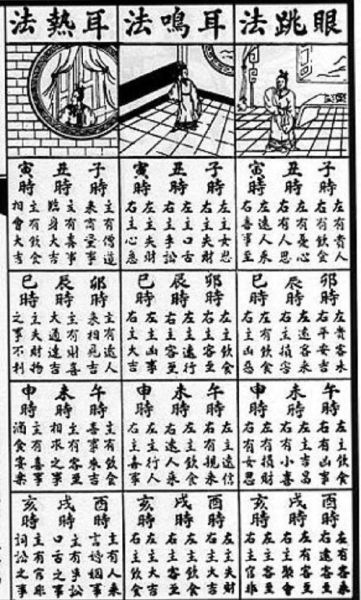 眼跳法
子時
左有貴人
右有飲食
丑時
左有憂心
右有人思
寅時
左遠人來
右喜事至
卯時
左貴客來
右平安吉
辰時
左遠客來
右主損害
巳時
左有飲食
右主凶惡
午時
左主飲食
右有凶事
未時
左主吉昌
右有小喜
申時
左有損財
右有女思
酉時
左有客至
右遠客至
戌時
左主客至
右主聚會
亥時
左主客至
右主官非
耳鳴法
子時
左主女思
右主失財
丑時
左主口舌
右主爭訟
寅時
左主失財
右主心急
卯時
左主飲食
右主客至
辰時
左主遠行
右主客至
巳時
左主凶事
右主大吉
午時
左主遠信
右有親來
未時
左主飲食
右遠人來
申時
左主行人
右主喜事
酉時
左主失財
右主大吉
戌時
左主飲食
右主客至
亥時
左主大吉
右主飲食
耳熱法
子時
主有僧道
來商量事
丑時
主有喜事
臨身大吉
寅時
主有飲食
相會大吉
卯時
主有遠人
來相見吉
辰時
主有財喜
大通達吉
巳時
主失財物
之事不利
午時
主有飲食
喜事來吉
未時
主有客至
相求之事
申時
主有喜事
酒食宴樂
酉時
主有人來
言婚姻事
戌時
主有爭訟
口舌之事
亥時
主有官非
詞訟之事